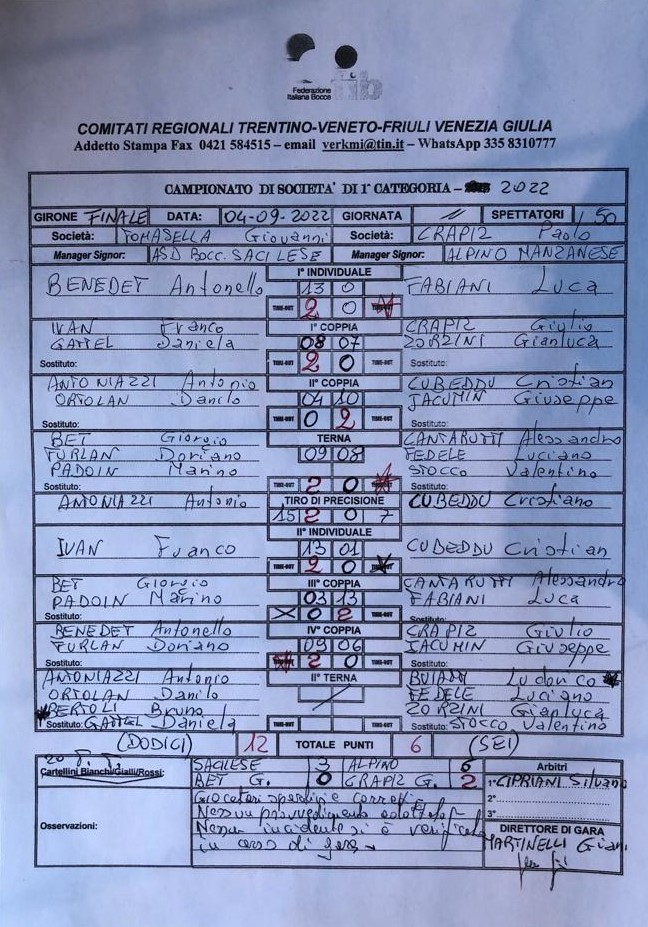 Federazione
Italiana Bocce
fib
COMITATI REGIONALI TRENTINO-VENETO-FRIULI VENEZIA GIULIA
Addetto Stampa Fax 0421 584515 – email verkmi@tin.it – WhatsApp 335 8310777
CAMPIONATO DI SOCIETA' DI 1ª CATEGORIA – 2022
GIRONE FINALE DATA: 04-09-2022 GIORNATA // SPETTATORI 50
Società: TOMASELLA Giovanni Società: CRAPIZ Paolo
Manager Signor: ASD BOCC. SACILESE Manager Signor: ALPINO MANZANESE
I° INDIVIDUALE
BENEDET Antonello 13 0 FABIANI Luca
TIME-OUT 2 0
I° COPPIA
IVAN Franco CRAPIZ Giulio
GATTEL Daniela 08 07 ZORZINI Gianluca
Sostituto: TIME-OUT 2 0 TIME-OUT Sostituto:
II° COPPIA
ANTONIAZZI Antonio CUBEDDU Cristian
ORTOLAN Danilo 04 10 IACUMIN Giuseppe
Sostituto: TIME-OUT 0 2 TIME-OUT Sostituto:
TERNA
BET Giorgio CANTARUTTI Alessandro
FURLAN Doriano 09 08 FEDELE Luciano
PADOIN Marino STOCCO Valentino
Sostituto: TIME-OUT 2 0 Sostituto:
TIRO DI PRECISIONE
ANTONIAZZI Antonio 15 2 0 7 CUBEDDU Cristiano
II° INDIVIDUALE
IVAN Franco 13 01 CUBEDDU Cristian
TIME-OUT 2 0
III° COPPIA
BET Giorgio CANTARUTTI Alessandro
PADOIN Marino 03 13 FABIANI Luca
Sostituto: 0 2 TIME-OUT Sostituto:
IV° COPPIA
BENEDET Antonello CRAPIZ Giulio
FURLAN Doriano 09 06 IACUMIN Giuseppe
Sostituto: 2 0 TIME-OUT Sostituto:
II° TERNA
ANTONIAZZI Antonio Ludovico
ORTOLAN Danilo FEDELE Luciano
BERTOLI Bruno ZORZINI Gianluca
Sostituto: GATTEL Daniela TIME-OUT TIME-OUT Sostituto: STOCCO Valentino
(DODICI) 12 TOTALE PUNTI 6 (SEI)
Cartellini Bianchi/Gialli/Rossi: SACILESE 3 ALPINO 6 Arbitri
BET G. 0 CRAPIZ G. 2 1° CIPRIANI Silvano
2°
3°
Osservazioni: Giocatori sportivi e corretti
Nessun provvedimento adottato
Nessun incidente si è verificato
in corso di gara
DIRETTORE DI GARA
MARTINELLI Gianni